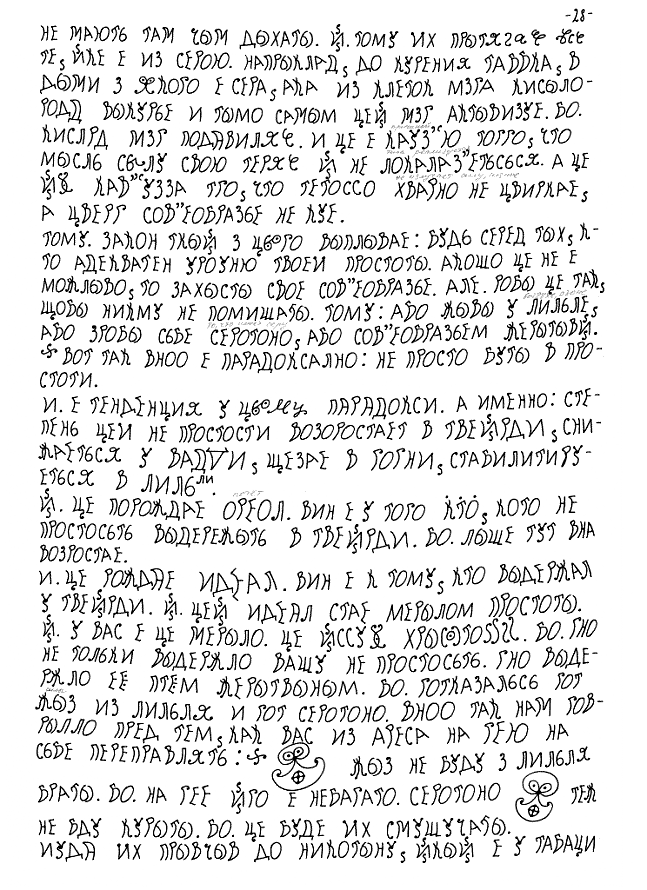 -28-
НЕ МАЮТЬ ТАМ ЧЫМ ДЫХАТЫ. Й. ТОМУ ИХ ПРЫТЯГАЄ ВСЕ
ТЕ, ЙКЕ Е ИЗ СЕРОЮ. НАПРЫКЛАД, ДО КУРЕНИЯ ТАБАКА, В
ДЫМИ З ЯКОГО Е СЕРА, АКА ИЗ КЛЕТОК МЗГА КИСЫЛО-
РОДД ВЫКУРЬЕ И ТЫМО САМЫМ ЦЕЙ МЗГ АКТЫВИЗУЕ. БО.
КИСЛРД МЗГ ПОДАВИЛЯЄ. И ЦЕ Е КАУЗ"Ю ТОГГО, ЧТО
МЫСЛЬ СВЫЛУ СВОЮ ТЕРЯЄ Й НЕ ЛОКАЛАЗ"ЕТЬСЬСЯ. А ЦЕ
КАВ"УЗЗА ТГО, ЧТО ТЕГОССО ХВАРНО НЕ ЦВИРКАЕ,
А ЦВЕРГ СОВ"ЕОБРАЗЬЕ НЕ КУЕ.
ТОМУ. ЗАКОН ТКЫЙ З ЦЬОГО ВЫПЛЫВАЕ: БУДЬ СЕРЕД ТЫХ, К-
ТО АДЕКВАТЕН УРОУНЮ ТВОЕИ ПРОСТОТЫ. АКОШО ЦЕ НЕ Е
МОЖЛЫВО, ТО ЗАХЫСТЫ СВОЕ СОВ"ЕОБРАЗЬЕ. АЛЕ. РОБЫ ЦЕ ТАК,
ЩОБЫ НИКМУ НЕ ПОМИШАТЫ. ТОМУ: АБО ЖЫВЫ У ЛИЛЬЛЕ,
АБО ЗРОБЫ СЬБЕ СЕРОТОНО, АБО СОВ"ЕОБРАЗЬЕМ ЖЕРЫТВЫЙ.
ВОТ ТАК ВНОО Е ПАРАДОКСАЛНО: НЕ ПРОСТО БУТЫ В ПРО-
СТОТИ.
И. Е ТЕНДЕНЦИЯ У ЦЬОМУ ПАРАДОКСИ. А ИМЕННО: СТЕ-
ПЕНЬ ЦЕИ НЕ ПРОСТОСТИ ВОЗОРОСТАЕТ В ТВЕЙРДИ, СНИ-
ЖАЕТЬСЯ У ВАДУИ, ЩЕЗАЕ В ГОГНИ, СТАБИЛИТИРУ-
ЕТЬСЯ В ЛИЛЬЛИ.
Й. ЦЕ ПОРОЖДАЕ ОРЕОЛ. ВИН Е У ТОГО КТО, КОТО НЕ
ПРОСТОСЬТЬ ВЫДЕРЕЖЫТЬ В ТВЕЙРДИ. БО. ЛЫШЕ ТУТ ВНА
ВОЗРОСТАЕ.
И. ЦЕ РОЖДАЕ ИДЕАЛ. ВИН Е К ТОМУ, КТО ВЫДЕРЖАЛ
У ТВЕЙРДИ. Й. ЦЕЙ ИДЕАЛ СТАЕ МЕРЫЛОМ ПРОСТОТЫ.
Й. У ВАС Е ЦЕ МЕРЫЛО. ЦЕ ЙССУ ХРЫСТОС. БО. ГНО
НЕ ТОЛЬКИ ВЫДЕРЖЛО ВАШУ НЕ ПРОСТОСЬТЬ. ГНО ВЫДЕ-
РЖЛО ЕЕ ПТЕМ ЖЕРЫТВЫНЫМ. БО. ГОТКАЗАЛЬСЬ ГОТ
ЖЫЗ ИЗ ЛИЛЬЛЯ И ГОТ СЕРОТОНО. ВНОО ТАК НАМ ГОВ-
РЫЛЛО ПРЕД ТЕМ, КАК ВАС ИЗ АРЕСА НА ГЕЮ НА
СЬБЕ ПЕРЕПРАВЛЯТЬ: ЖЫЗ НЕ БУДУ З ЛИЛЬЛЯ
БРАТЫ. БО. НА ГЕЕ ЙГО Е НЕБАГАТО. СЕРОТОНО ТЕЖ
НЕ БДУ КУРЫТЫ. БО. ЦЕ БУДЕ ИХ СМУЩУЧАТЫ.
ИУДА ИХ ПРЫВЧЫВ ДО НИКОТЫНУ, ЙКЫЙ Е У ТАБАЦИ